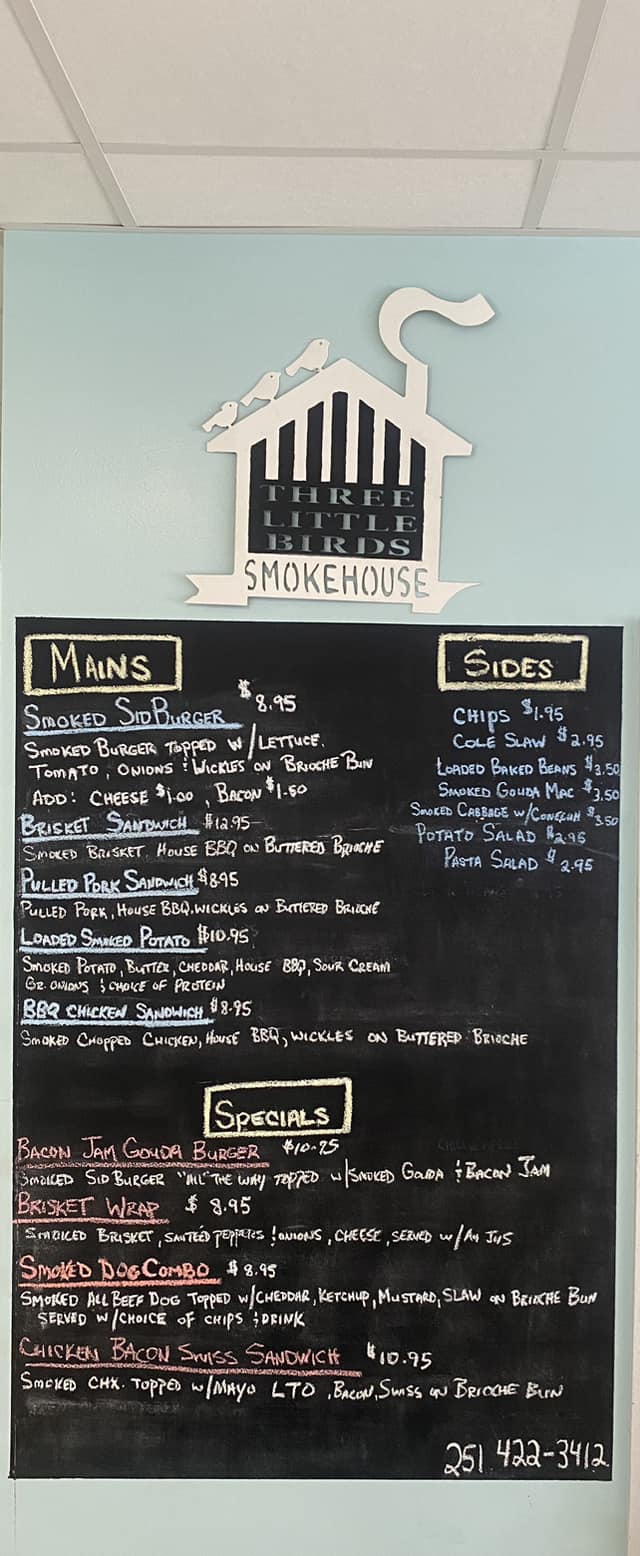 THREE
LITTLE
BIRDS
SMOKEHOUSE
MAINS
SMOKED SID BURGER $8.95
SMOKED BURGER TOPPED W/LETTUCE,
TOMATO, ONIONS & WICKLES ON BRIOCHE BUN
ADD: CHEESE $1.00, BACON $1.50
BRISKET SANDWICH $12.95
SMOKED BRISKET, HOUSE BBQ ON BUTTERED BRIOCHE
PULLED PORK SANDWICH $8.95
PULLED PORK, HOUSE BBQ, WICKLES ON BUTTERED BRIOCHE
LOADED SMOKED POTATO $10.95
SMOKED POTATO, BUTTER, CHEDDAR, HOUSE BBQ, SOUR CREAM
GR. ONIONS & CHOICE OF PROTEIN
BBQ CHICKEN SANDWICH $8.95
SMOKED CHOPPED CHICKEN, HOUSE BBQ, WICKLES ON BUTTERED BRIOCHE
SIDES
CHIPS $1.95
COLE SLAW $2.95
LOADED BAKED BEANS $3.50
SMOKED GOUDA MAC $3.50
SMOKED CABBAGE W/CONECUH $3.50
POTATO SALAD $2.95
PASTA SALAD $2.95
SPECIALS
BACON JAM GOUDA BURGER $10.95
SMOKED SID BURGER "ALL" THE WAY TOPPED W/SMOKED GOUDA & BACON JAM
BRISKET WRAP $8.95
SMOKED BRISKET, SAUTÉED PEPPERS & ONIONS, CHEESE, SERVED W/AU JUS
SMOKED DOG COMBO $8.95
SMOKED ALL BEEF DOG TOPPED W/CHEDDAR, KETCHUP, MUSTARD, SLAW ON BRIOCHE BUN
SERVED W/CHOICE OF CHIPS & DRINK
CHICKEN BACON SWISS SANDWICH $10.95
SMOKED CHX. TOPPED W/MAYO LTO, BACON, SWISS ON BRIOCHE BUN
251 422-3412